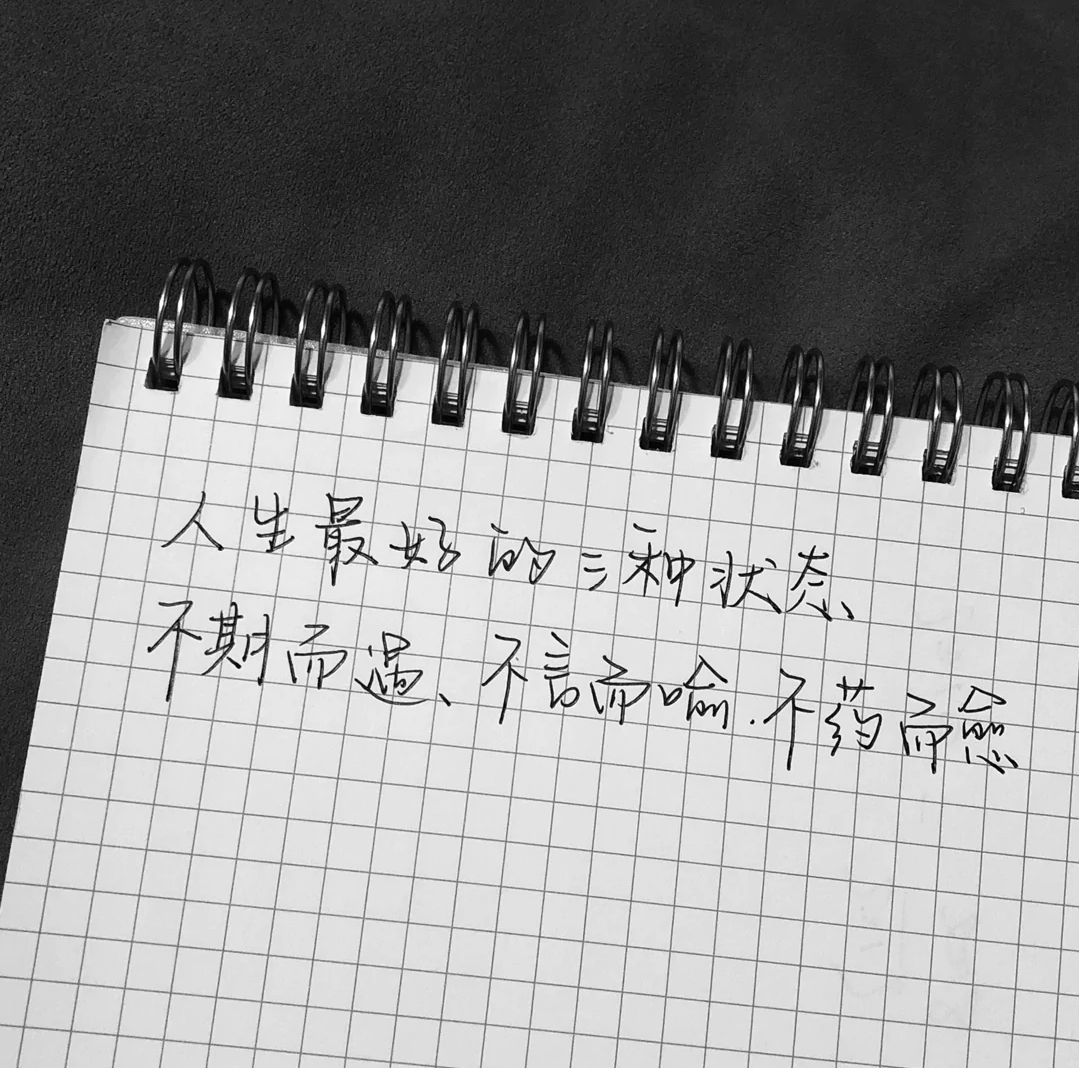 人生最好的三种状态、
不期而遇、不言而喻.不药而愈